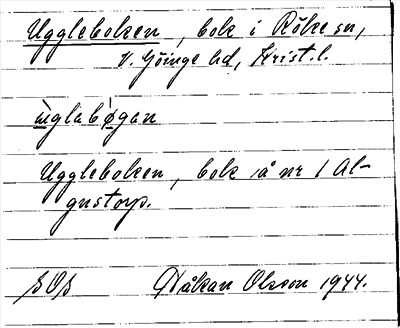 Uggleboken, bok i Röke sn,
V. Göinge hd, Krist. l.
ùglabøgan
Uggleboken, bok å nr 1 Al-
gustorp.
SOB Håkan Olsson 1944.